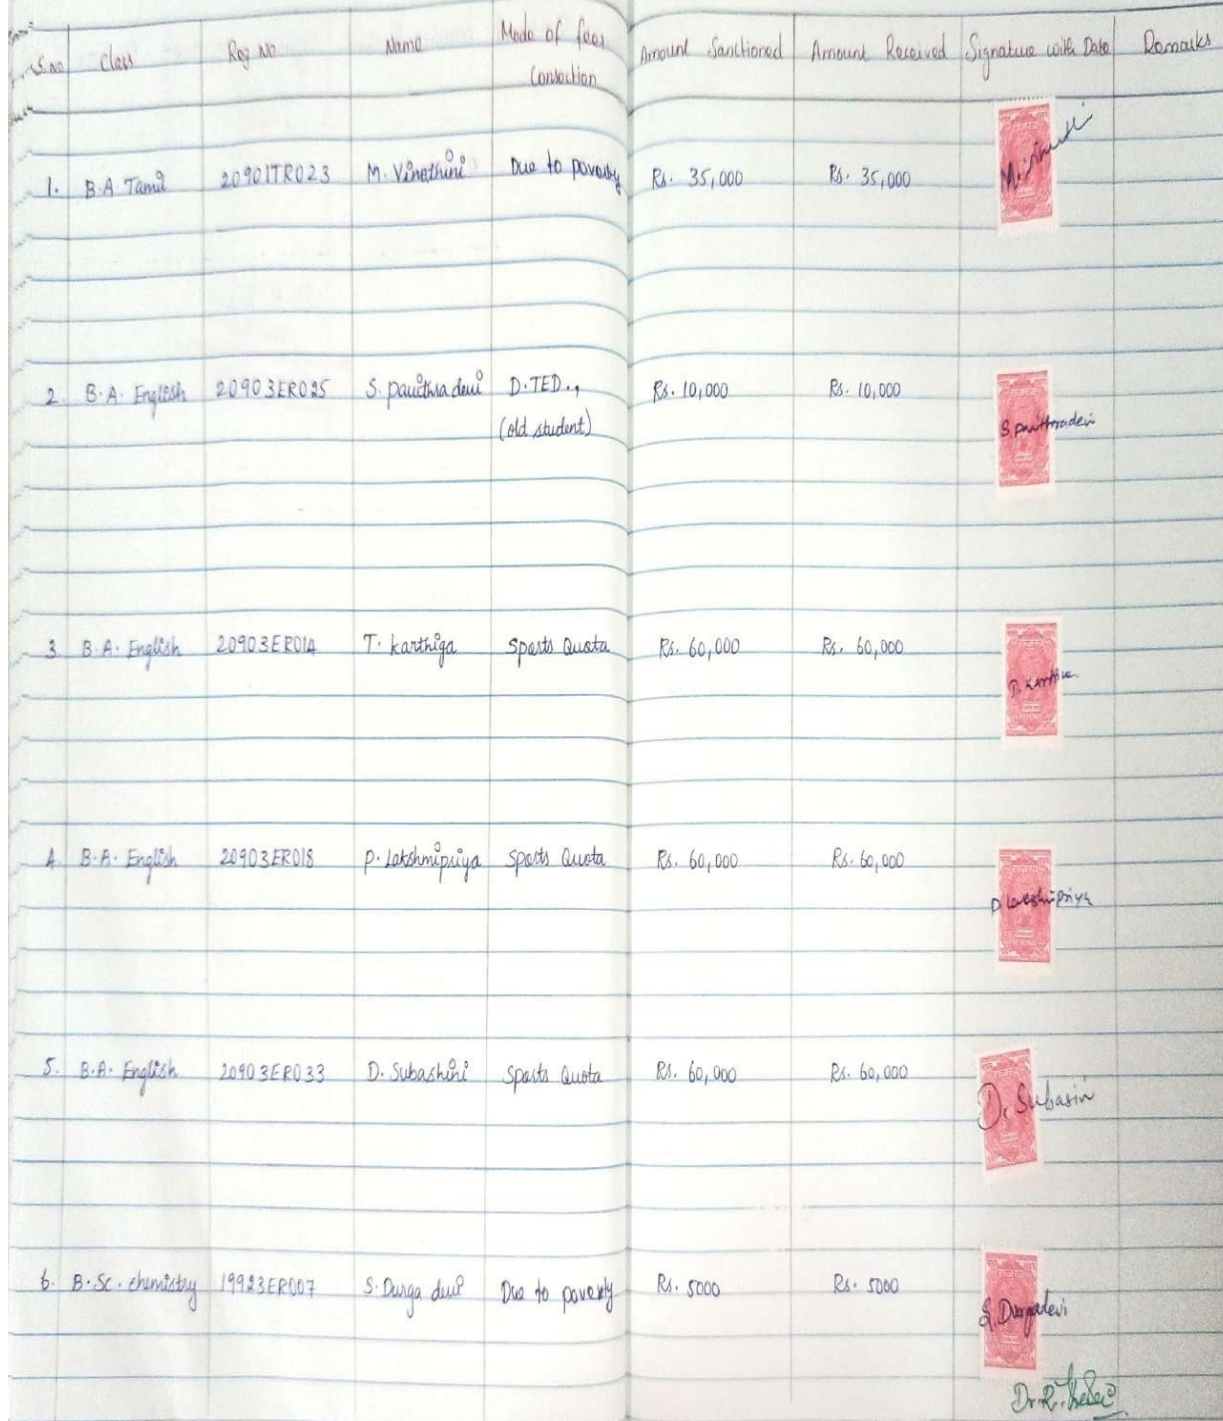 S.No Class Reg No Name Mode of fees Consection Amount Sanctioned Amount Received Signature with Date Remarks
1. B.A Tamil 20901TR023 M. Vinothini Due to poverty Rs. 35,000 Rs. 35,000
2. B.A. English 20903ER025 S. pavithra devi D.TED., (old student) Rs. 10,000 Rs. 10,000 S.pavithradevi
3. B.A. English 20903ER014 T. karthiga Sports Quota Rs. 60,000 Rs. 60,000 T. Karthika
4. B.A. English 20903ER018 P. Lakshmipriya Sports Quota Rs. 60,000 Rs. 60,000 P Lakshmipriya
5. B.A. English 20903ER033 D. Subashini Sports Quota Rs. 60,000 Rs. 60,000 D. Subasini
6. B.Sc. chemistry 19923ER007 S. Durga devi Due to poverty Rs. 5000 Rs. 5000 S. Durgadevi
Dr. R.